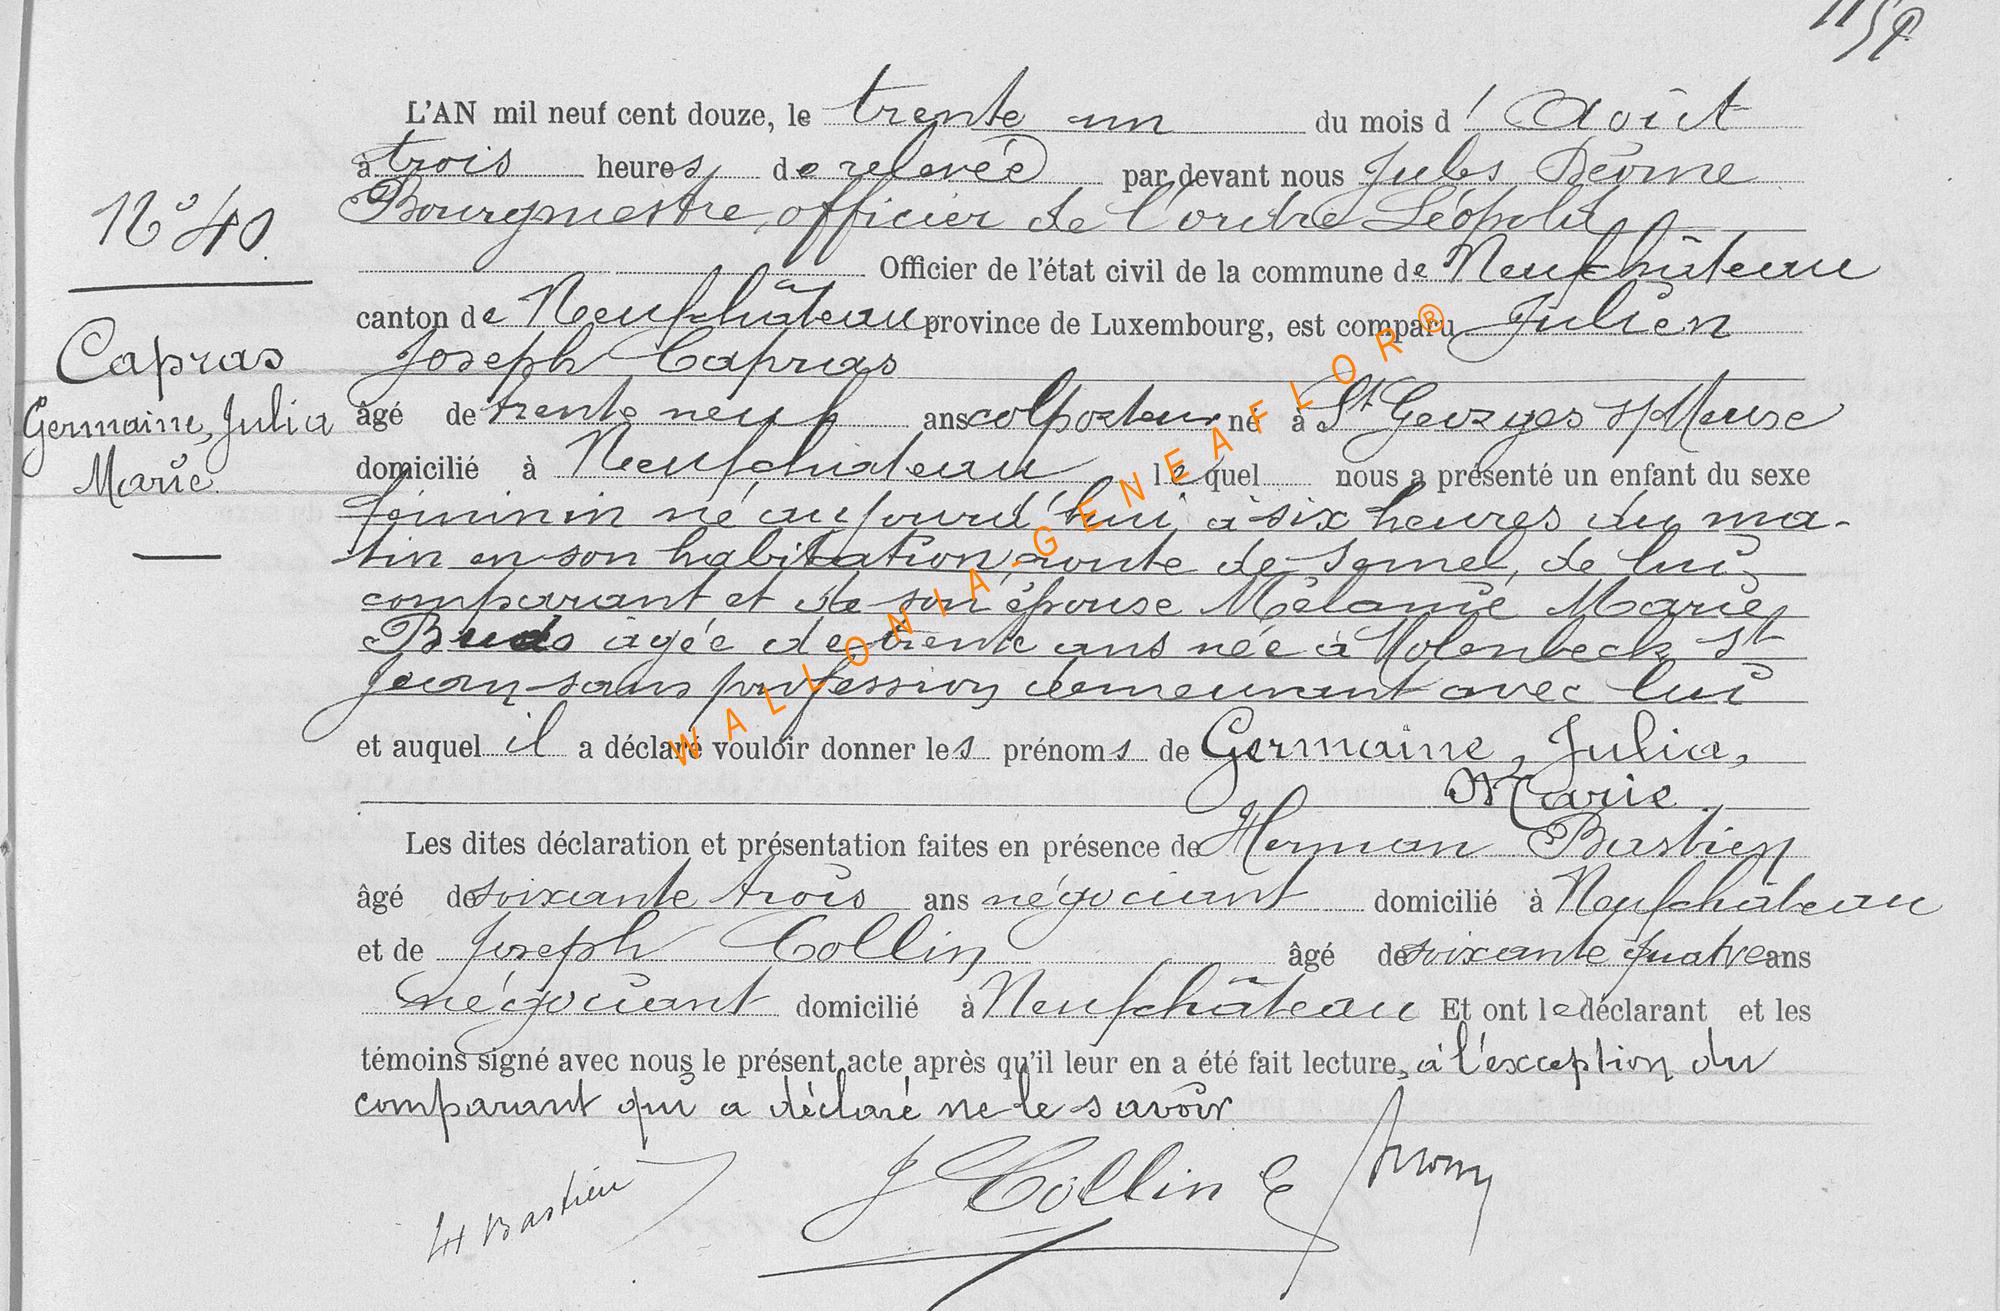 L'AN mil neuf cent douze, le trente un du mois d'Août
à trois heures de relevée par devant nous Jules
Bourgmestre, officier de l'ordre Léopold
N° 40.
Officier de l'état civil de la commune de Neufchâteau
canton de Neufchâteau province de Luxembourg, est comparu Julien
Capras
Joseph Capras
Germaine, Julia
âgé de trente neuf ans colporteur né à St Georges s/Meuse
Marie.
domicilié à Neufchâteau lequel nous a présenté un enfant du sexe
féminin né aujourd'hui à six heures du ma-
tin en son habitation, route de Semel, de lui
comparant et de son épouse Mélanie Marie
âgée de trente ans née à Molenbeek St
Jean sans profession demeurant avec lui
et auquel il a déclaré vouloir donner les prénoms de Germaine, Julia,
Marie.
Les dites déclaration et présentation faites en présence de Herman Bastien
âgé de soixante trois ans négociant domicilié à Neufchâteau
et de Joseph Collin âgé de soixante quatre ans
négociant domicilié à Neufchâteau Et ont le déclarant et les
témoins signé avec nous le présent acte après qu'il leur en a été fait lecture, à l'exception du
comparant qui a déclaré ne le savoir
H Bastien J Collin
WALLONIA-GENEAFLOR®